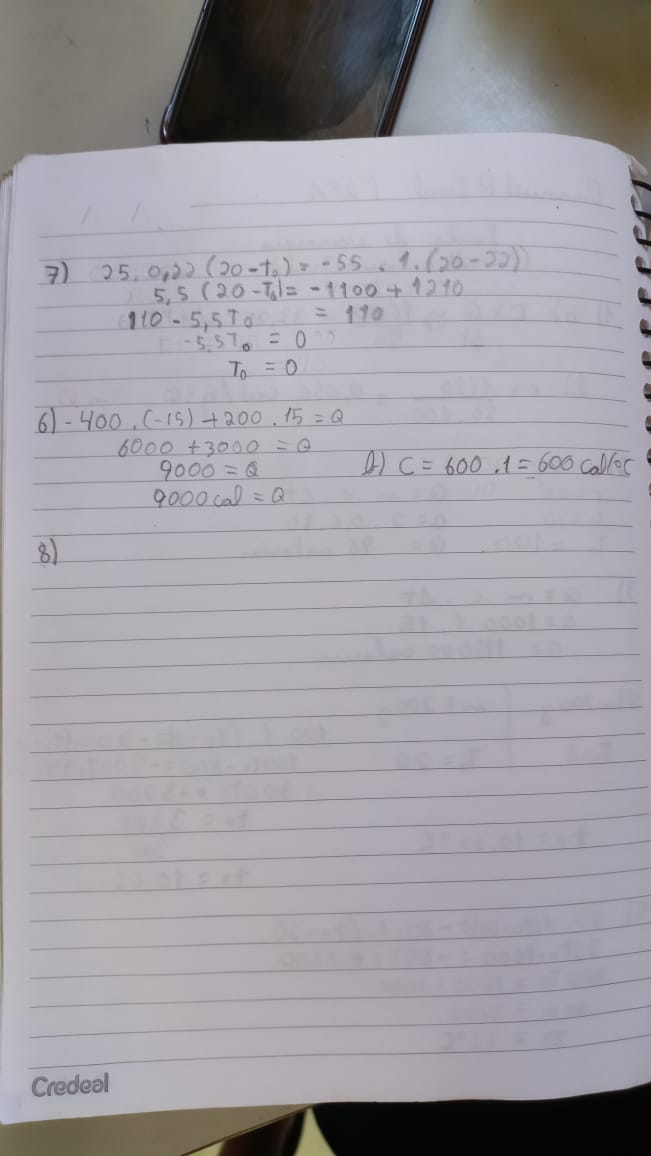 7) 25. 0,22 (20-t₀) = -55 . 1. (20-22)
5,5 (20-T₀)= -1100 + 1210
110 - 5,5T₀ = 110
-5,5T₀ = 0
T₀ = 0
6) -400 . (-15) + 200 . 15 = Q
6000 + 3000 = Q
9000 = Q
b) C = 600 . 1 = 600 cal/°C
9000 cal = Q
8)
Credeal